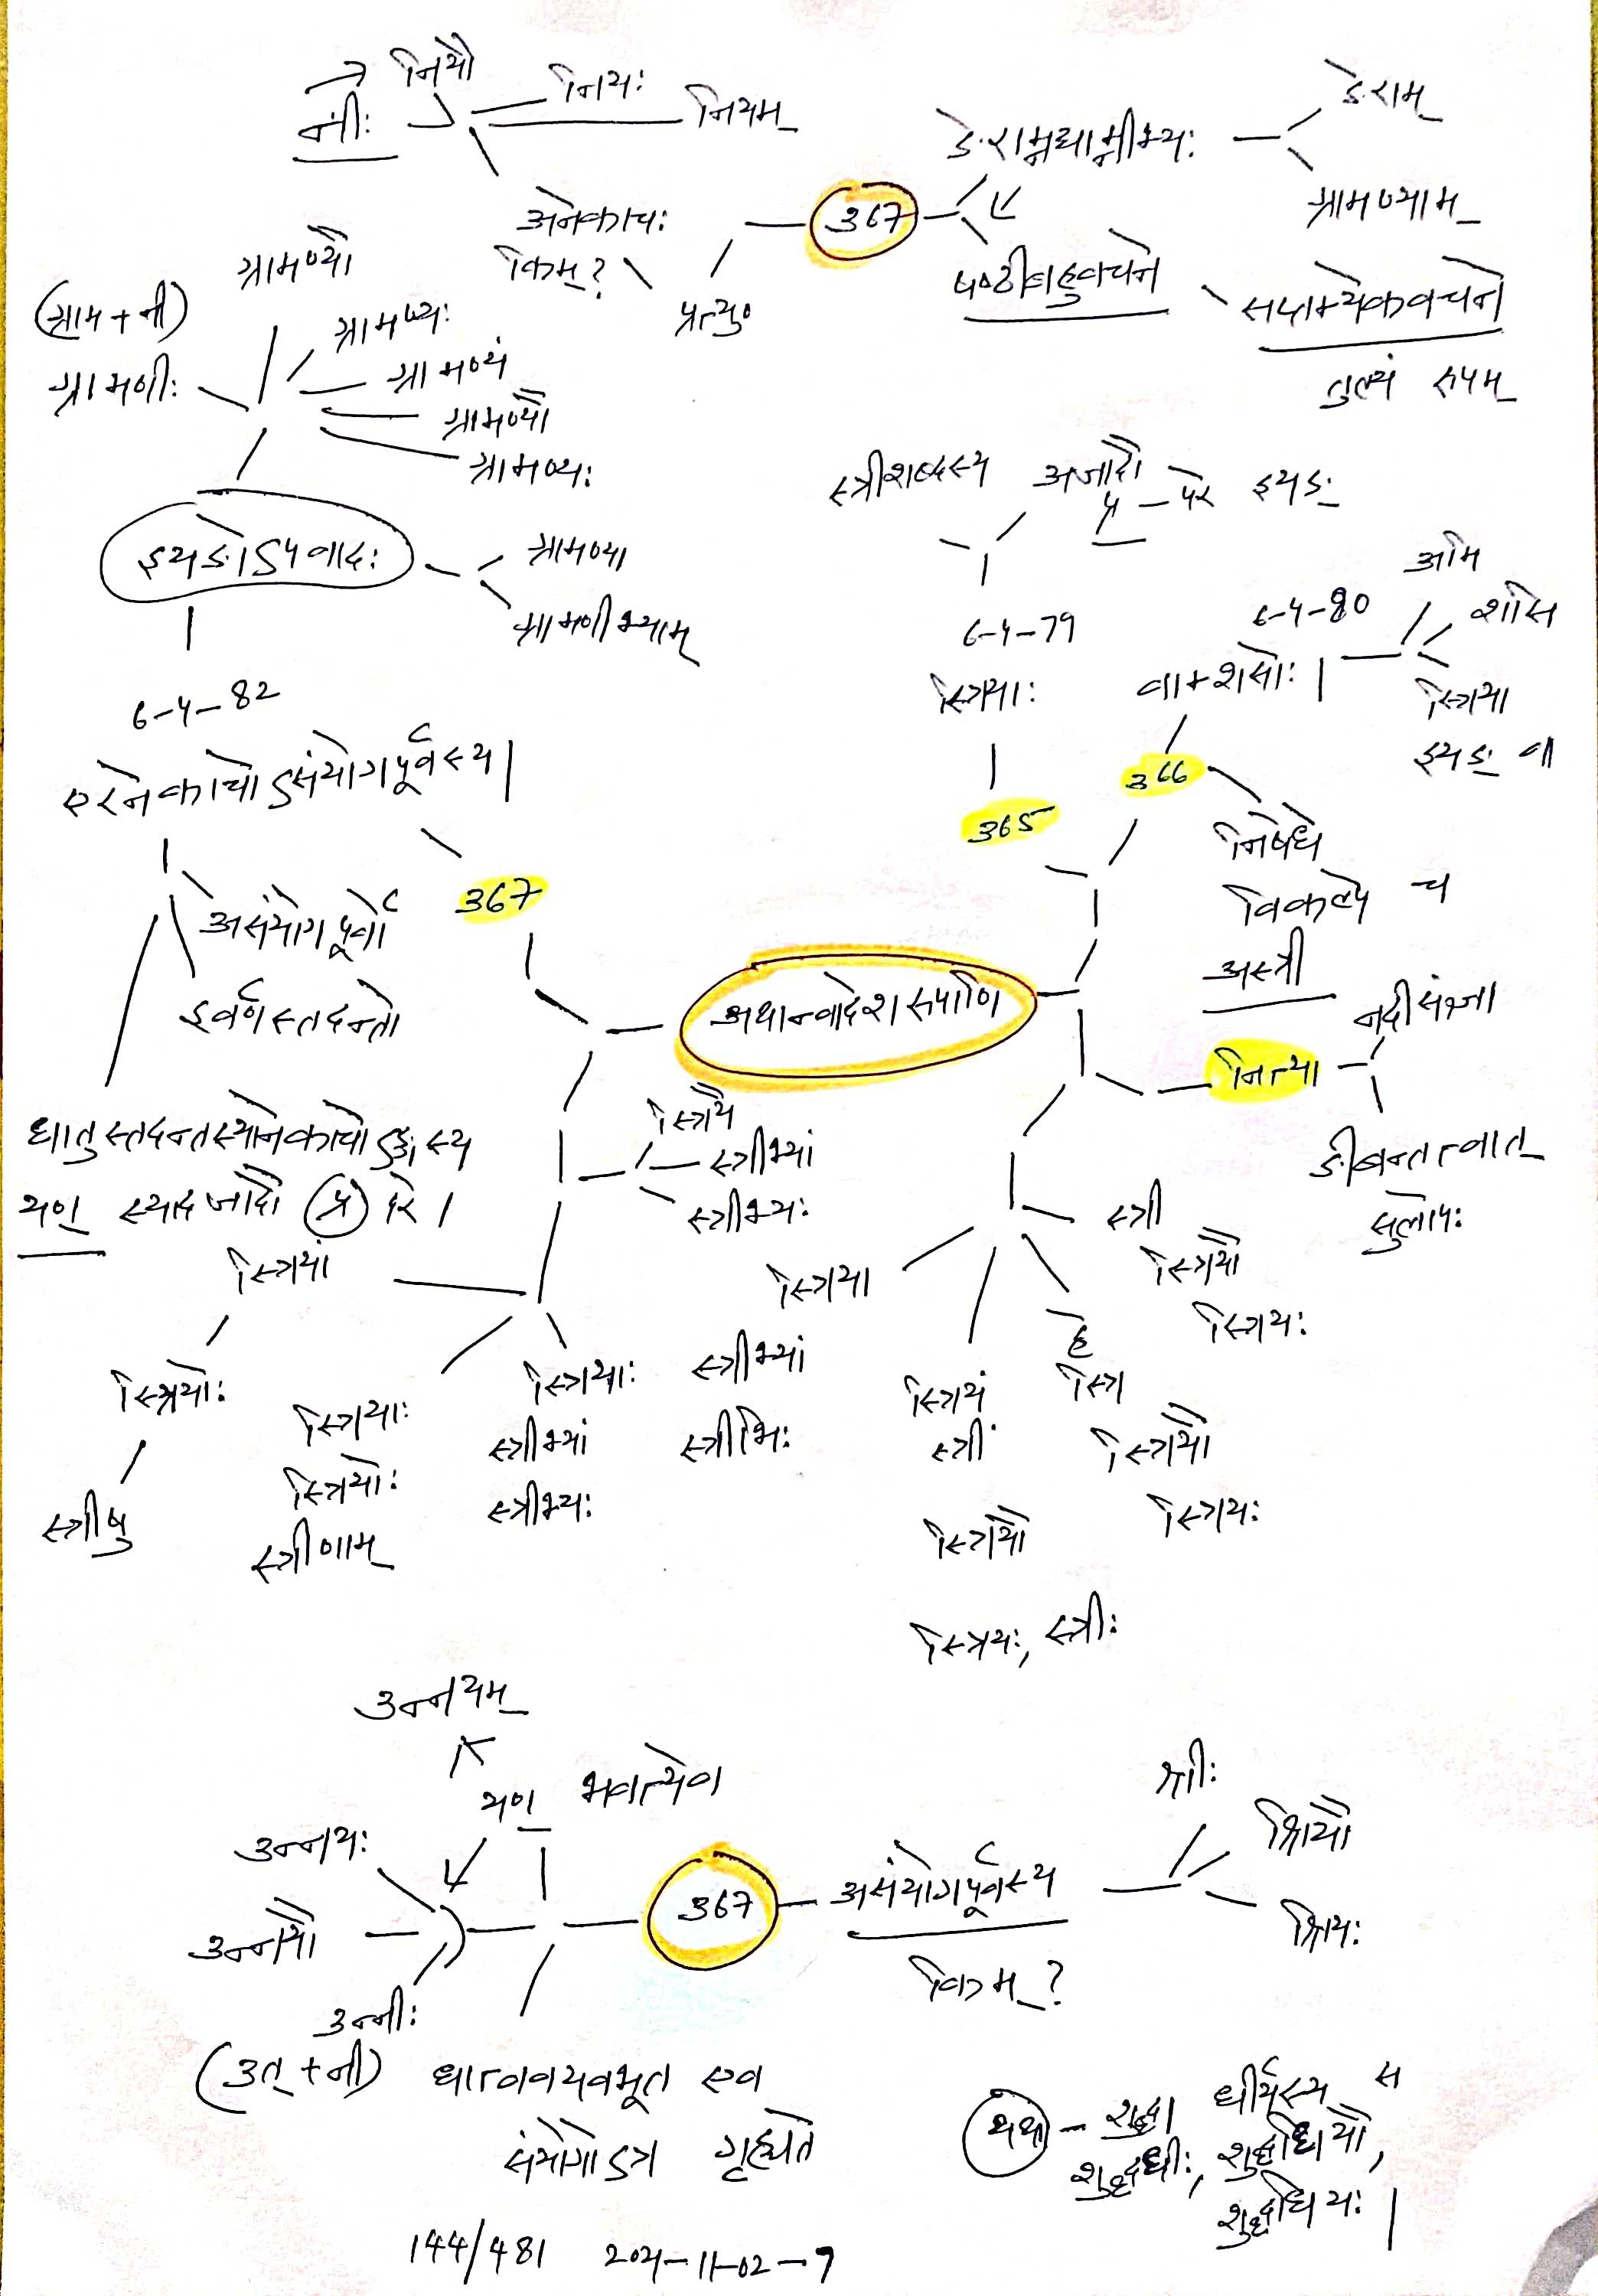 नीः
नियौ
नियः
नियम्
अनेकाचः
किम्?
प्रत्यु०
367
ङेराम्नद्याम्नीभ्यः
ङेराम्
ग्रामण्याम्
षष्ठीबहुवचने
सप्तम्येकवचने
तुल्यं रूपम्
ग्रामण्यौ
(ग्राम + नी)
ग्रामणीः
ग्रामण्यः
ग्रामण्यं
ग्रामण्यौ
ग्रामण्यः
इयङोऽपवादः
ग्रामण्या
ग्रामणीभ्याम्
6-4-82
एरनेकाचोऽसंयोगपूर्वस्य|
367
असंयोगपूर्वो
इवर्णस्तदन्तो
धातुस्तदन्तस्यानेकाचोऽङ्गस्य
यण् स्यादजादौ प्र परे।
स्त्रीशब्दस्य अजादौ प्र – परे इयङ्
6-4-79
स्त्रियाः
365
6-4-80
वाम्शसोः|
अमि
शसि
स्त्रिया
इयङ् वा
366
निषेधे
विकल्पे च
अस्त्री
अथान्वादेशरूपाणि
नित्या
नदीसंज्ञा
ङीबन्तत्वात्
सुलोपः
स्त्री
स्त्रियौ
स्त्रियः
हे
स्त्रि
स्त्रियौ
स्त्रियः
स्त्रियं
स्त्रीं
स्त्रियौ
स्त्रियः, स्त्रीः
स्त्रिया
स्त्रीभ्यां
स्त्रीभिः
स्त्रियै
स्त्रीभ्यां
स्त्रीभ्यः
स्त्रियाः
स्त्रीभ्यां
स्त्रीभ्यः
स्त्रियाः
स्त्रियोः
स्त्रीणाम्
स्त्रियां
स्त्रियोः
स्त्रीषु
उन्नयम्
यण् भवत्येव
उन्नयः
उन्नयौ
उन्नीः
(उत् + नी)
367
असंयोगपूर्वस्य
किम्?
श्रीः
श्रियौ
श्रियः
धात्ववयवभूत एव
संयोगोऽत्र गृह्यते
यथा – शुद्धा धीर्यस्य स
शुद्धधीः, शुद्धधियौ,
शुद्धधियः|
144/481 2021-11-02-7